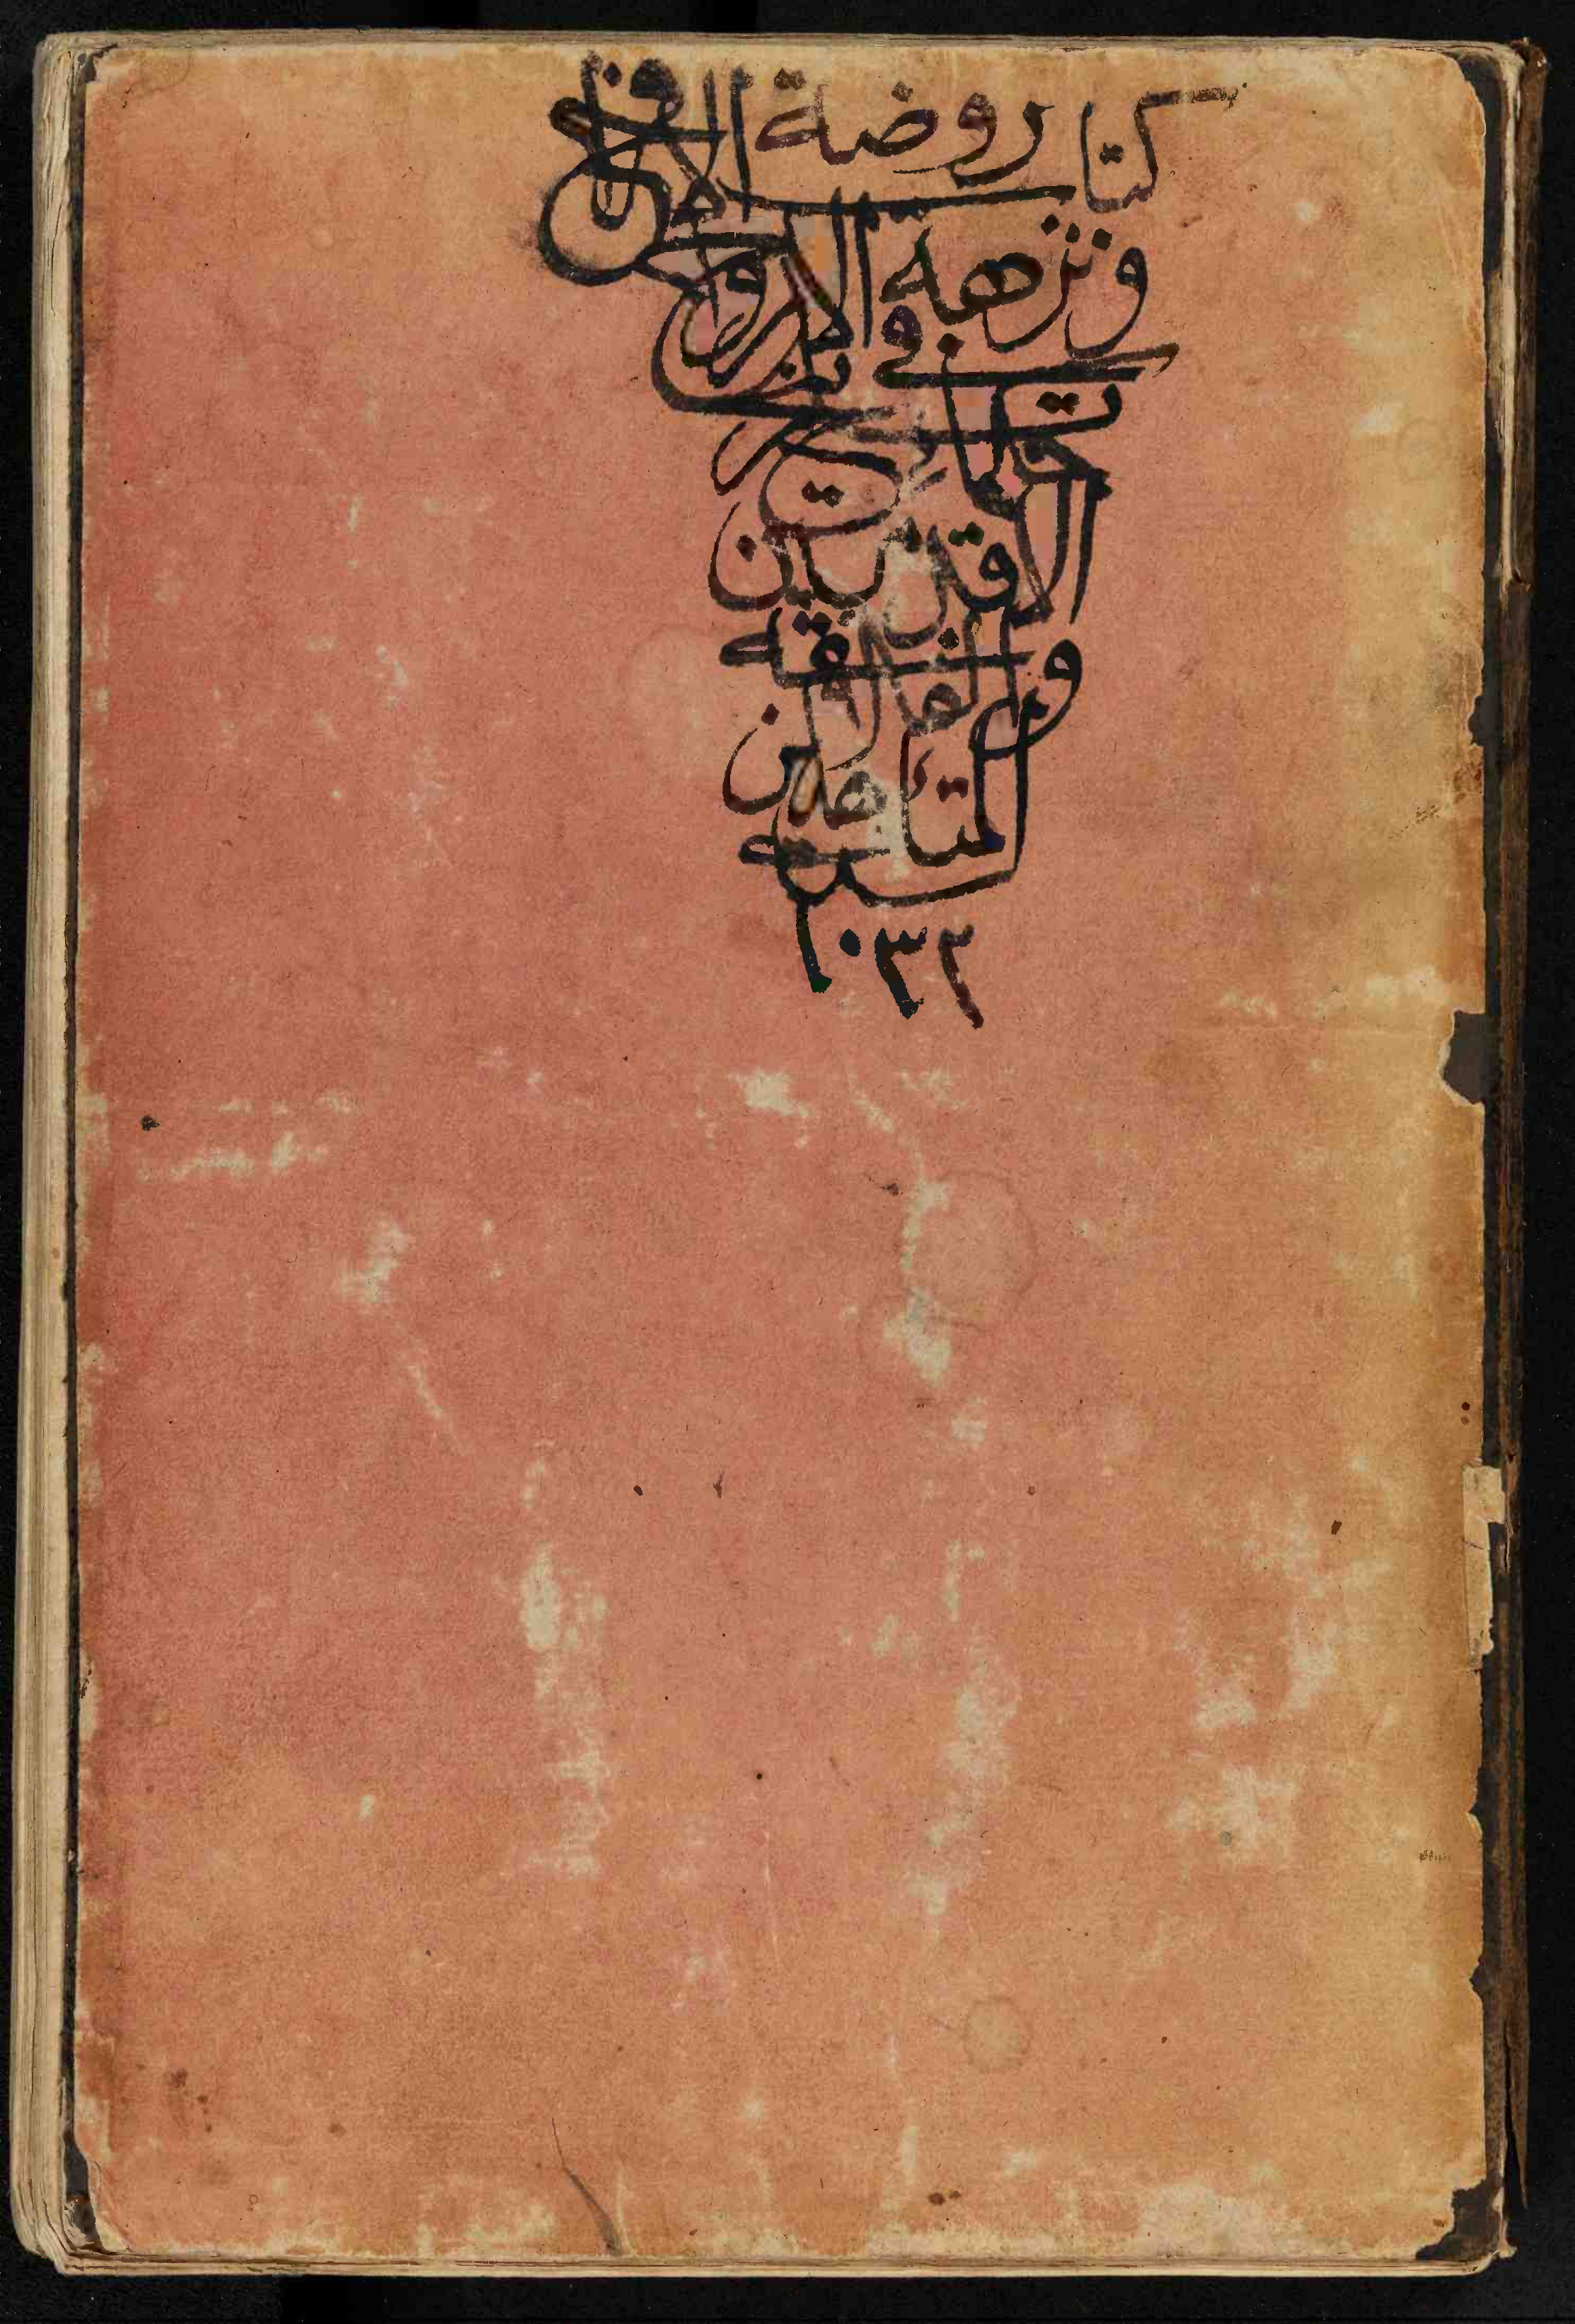 كتاب روضة الافراح
ونزهة الارواح
في تواريخ
حكماء
الاقدمين
والفلاسفة
المتألهين
سنة
١٠٣٢